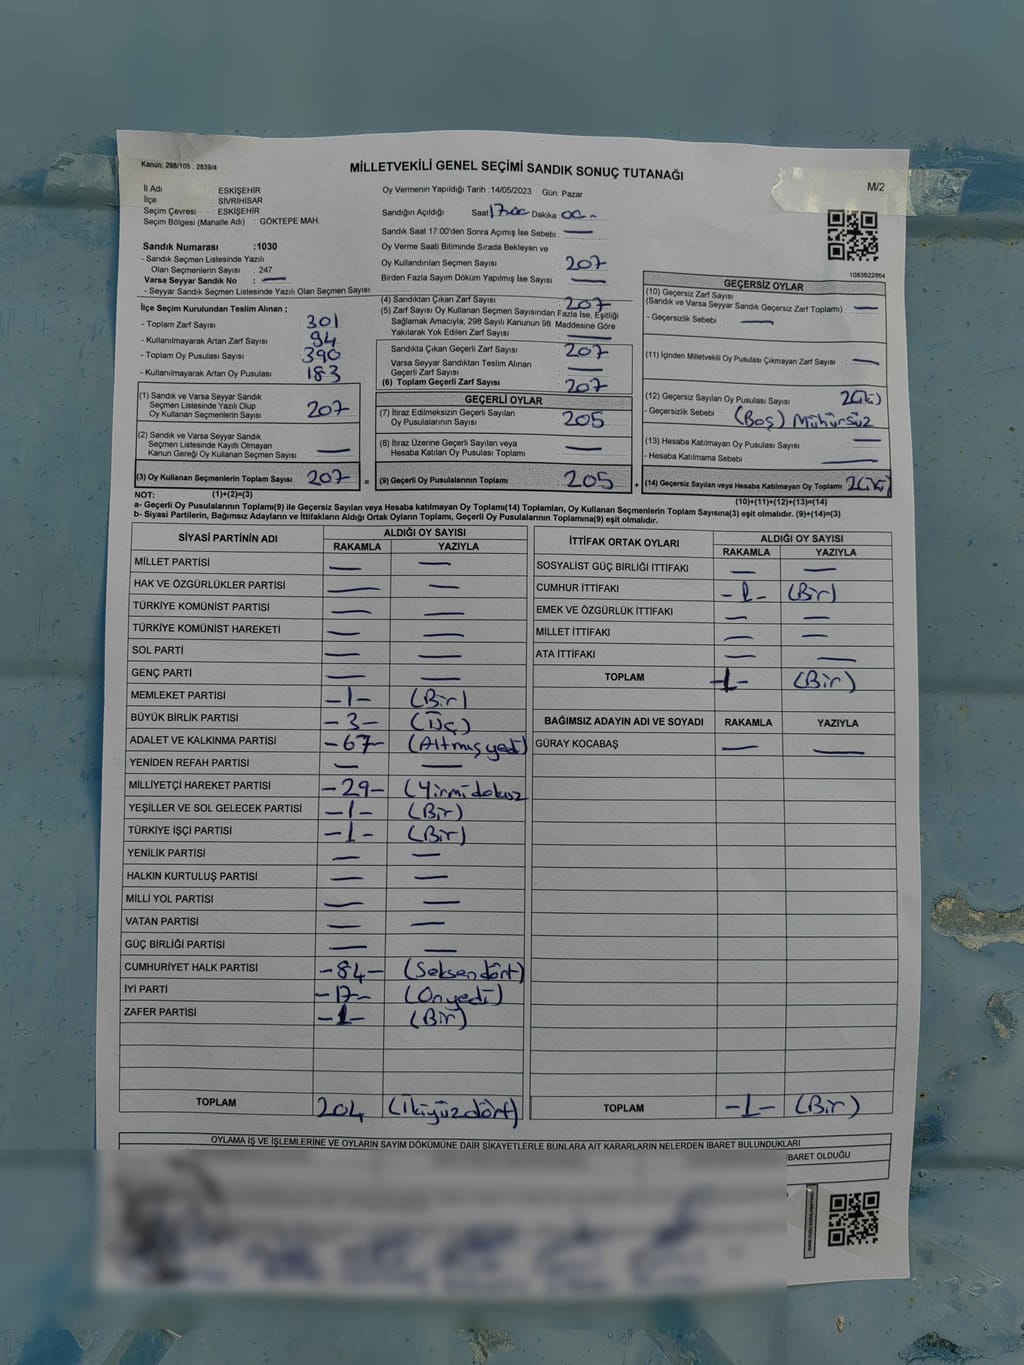 Kanun; 298/105 , 2839/4
MİLLETVEKİLİ GENEL SEÇİMİ SANDIK SONUÇ TUTANAĞI
M/2
İl Adı : ESKİŞEHİR
İlçe : SİVRİHİSAR
Seçim Çevresi : ESKİŞEHİR
Seçim Bölgesi (Mahalle Adı) : GÖKTEPE MAH.
Sandık Numarası :1030
- Sandık Seçmen Listesinde Yazılı
Olan Seçmenlerin Sayısı : 247
Varsa Seyyar Sandık No : —
- Seyyar Sandık Seçmen Listesinde Yazılı Olan Seçmen Sayısı:
İlçe Seçim Kurulundan Teslim Alınan ;
- Toplam Zarf Sayısı 301
- Kullanılmayarak Artan Zarf Sayısı 94
- Toplam Oy Pusulası Sayısı 390
- Kullanılmayarak Artan Oy Pusulası 183
(1) Sandık ve Varsa Seyyar Sandık
Seçmen Listesinde Yazılı Olup
Oy Kullanan Seçmenlerin Sayısı 207
(2) Sandık ve Varsa Seyyar Sandık
Seçmen Listesinde Kayıtlı Olmayan
Kanun Gereği Oy Kullanan Seçmen Sayısı —
(3) Oy Kullanan Seçmenlerin Toplam Sayısı 207 =
Oy Vermenin Yapıldığı Tarih :14/05/2023 Gün: Pazar
Sandığın Açıldığı Saat 17:00 Dakika : 00 -
Sandık Saat 17:00'den Sonra Açımış İse Sebebi : —
Oy Verme Saati Bitiminde Sırada Bekleyen ve
Oy Kullandırılan Seçmen Sayısı 207
Birden Fazla Sayım Döküm Yapılmış İse Sayısı —
(4) Sandıktan Çıkan Zarf Sayısı 207
(5) Zarf Sayısı Oy Kullanan Seçmen Sayısından Fazla İse, Eşitliği
Sağlamak Amacıyla, 298 Sayılı Kanunun 98. Maddesine Göre
Yakılarak Yok Edilen Zarf Sayısı —
Sandıkta Çıkan Geçerli Zarf Sayısı 207
Varsa Seyyar Sandıktan Teslim Alınan
Geçerli Zarf Sayısı —
(6) Toplam Geçerli Zarf Sayısı 207
GEÇERLİ OYLAR
(7) İtiraz Edilmeksizin Geçerli Sayılan
Oy Pusulalarının Sayısı 205
(8) İtiraz Üzerine Geçerli Sayılan veya
Hesaba Katılan Oy Pusulası Toplamı —
(9) Geçerli Oy Pusulalarının Toplamı 205 +
1083622864
GEÇERSİZ OYLAR
(10) Geçersiz Zarf Sayısı
(Sandık ve Varsa Seyyar Sandık Geçersiz Zarf Toplamı) : —
- Geçersizlik Sebebi : —
(11) İçinden Milletvekili Oy Pusulası Çıkmayan Zarf Sayısı : —
(12) Geçersiz Sayılan Oy Pusulası Sayısı 2(iki)
- Geçersizlik Sebebi : (Boş) Mühürsüz
(13) Hesaba Katılmayan Oy Pusulası Sayısı —
- Hesaba Katılmama Sebebi : —
(14) Geçersiz Sayılan veya Hesaba Katılmayan Oy Toplamı 2(iki)
NOT: (1)+(2)=(3) (10)+(11)+(12)+(13)=(14)
a- Geçerli Oy Pusulalarının Toplamı(9) ile Geçersiz Sayılan veya Hesaba katılmayan Oy Toplamı(14) Toplamları, Oy Kullanan Seçmenlerin Toplam Sayısına(3) eşit olmalıdır. (9)+(14)=(3)
b- Siyasi Partilerin, Bağımsız Adayların ve İttifakların Aldığı Ortak Oyların Toplamı, Geçerli Oy Pusulalarının Toplamına(9) eşit olmalıdır.
SİYASİ PARTİNİN ADI ALDIĞI OY SAYISI
RAKAMLA YAZIYLA
MİLLET PARTİSİ — —
HAK VE ÖZGÜRLÜKLER PARTİSİ — —
TÜRKİYE KOMÜNİST PARTİSİ — —
TÜRKİYE KOMÜNİST HAREKETİ — —
SOL PARTİ — —
GENÇ PARTİ — —
MEMLEKET PARTİSİ -1- (Bir)
BÜYÜK BİRLİK PARTİSİ -3- (Üç)
ADALET VE KALKINMA PARTİSİ -67- (Altmışyedi)
YENİDEN REFAH PARTİSİ — —
MİLLİYETÇİ HAREKET PARTİSİ -29- (Yirmidokuz
YEŞİLLER VE SOL GELECEK PARTİSİ -1- (Bir)
TÜRKİYE İŞÇİ PARTİSİ -1- (Bir)
YENİLİK PARTİSİ — —
HALKIN KURTULUŞ PARTİSİ — —
MİLLİ YOL PARTİSİ — —
VATAN PARTİSİ — —
GÜÇ BİRLİĞİ PARTİSİ — —
CUMHURİYET HALK PARTİSİ -84- (Seksendört)
İYİ PARTİ -17- (Onyedi)
ZAFER PARTİSİ -1- (Bir)
TOPLAM 204 (İkiyüzdört)
İTTİFAK ORTAK OYLARI ALDIĞI OY SAYISI
RAKAMLA YAZIYLA
SOSYALİST GÜÇ BİRLİĞİ İTTİFAKI — —
CUMHUR İTTİFAKI -1- (Bir)
EMEK VE ÖZGÜRLÜK İTTİFAKI — —
MİLLET İTTİFAKI — —
ATA İTTİFAKI — —
TOPLAM -1- (Bir)
BAĞIMSIZ ADAYIN ADI VE SOYADI RAKAMLA YAZIYLA
GÜRAY KOCABAŞ — —
TOPLAM -1- (Bir)
OYLAMA İŞ VE İŞLEMLERİNE VE OYLARIN SAYIM DÖKÜMÜNE DAİR ŞİKAYETLERLE BUNLARA AİT KARARLARIN NELERDEN İBARET BULUNDUKLARI
İBARET OLDUĞU